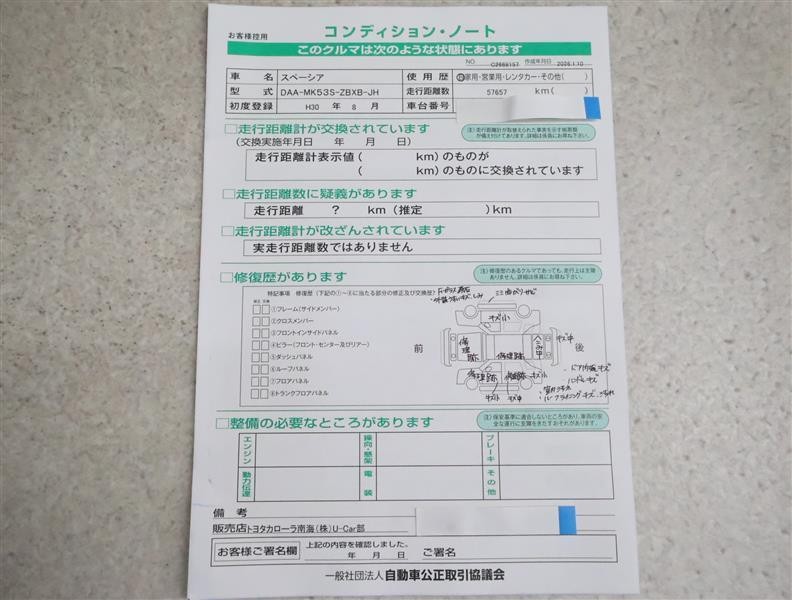 お客様控用
コンディション・ノート
このクルマは次のような状態にあります
NO. C2668157 作成年月日 2026.1.10
車名 スペーシア 使用歴 自家用・営業用・レンタカー・その他( )
型式 DAA-MK53S-ZBXB-JH 走行距離数 57657 km( )
初度登録 H30 年 8 月 車台番号
□走行距離計が交換されています
(交換実施年月日 年 月 日)
注)走行距離計が取替えられた事実を示す帳票類が備え付けてあります。詳細は係員にお尋ね下さい。
走行距離計表示値( km)のものが
( km)のものに交換されています
□走行距離数に疑義があります
走行距離 ? km(推定 )km
□走行距離計が改ざんされています
実走行距離数ではありません
□修復歴があります
注)修復歴のあるクルマであっても、走行上は支障ありません。詳細は係員にお尋ね下さい。
特記事項 修復歴(下記の①～⑧に当たる部分の修正及び交換歴)
修正 交換
①フレーム(サイドメンバー)
②クロスメンバー
③フロントインサイドパネル
④ピラー(フロント・センター及びリアー)
⑤ダッシュパネル
⑥ルーフパネル
⑦フロアパネル
⑧トランクフロアパネル
前
後
キズ小
修理跡
キズ中
修理跡
修理跡
キズ小
キズ小
キズ中
・ドア内張キズ
ハンドルキズ
□整備の必要なところがあります
注)保安基準に適合しないところがあり、車両の安全な運行に支障をきたすおそれがあります。
エンジン
操向・懸架
ブレーキ
動力伝達
電装
その他
備考
販売店 トヨタカローラ南海(株)U-Car部
お客様ご署名欄 上記の内容を確認しました。
年 月 日 ご署名
一般社団法人 自動車公正取引協議会